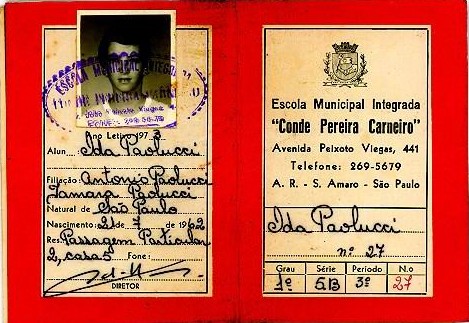 ESCOLA MUNICIPAL INTEGRADA
Ano Letivo 1973
Alun Ida Paolucci
Filiação: Antonio Paolucci
Tamara Paolucci
Natural de São Paulo
Nascimento: 21 de 7 de 1962
Res: Passagem Particular
2, casa 5 Fone:
DIRETOR
Escola Municipal Integrada
"Conde Pereira Carneiro"
Avenida Peixoto Viegas, 441
Telefone: 269-5679
A. R. - S. Amaro - São Paulo
Ida Paolucci
nº 27
Grau Série Período N.o
1º 5B 3º 27